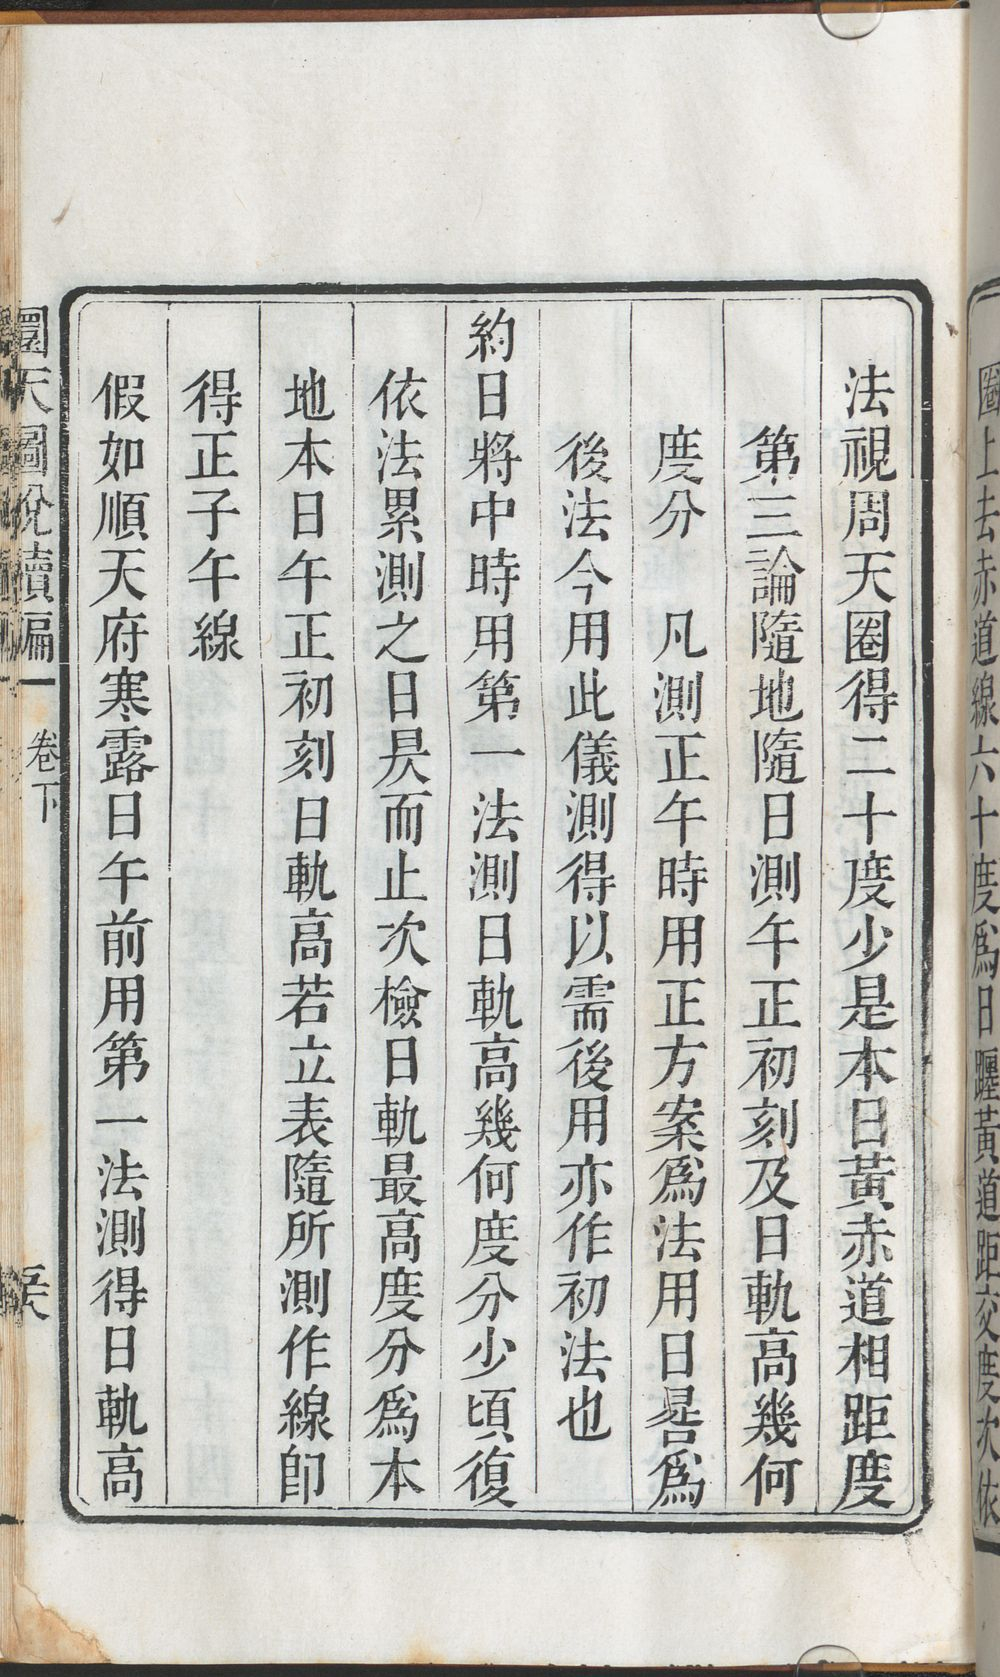 圈上去赤道線六十度為日躔黃道距交度次依
法視周天圈得二十度少是本日黃赤道相距度
第三論隨地隨日測午正初刻及日軌高幾何
度分　凡測正午時用正方案爲法用日晷爲
後法今用此儀測得以需後用亦作初法也
約日將中時用第一法測日軌高幾何度分少頃復
依法累測之日昃而止次檢日軌最高度分爲本
地本日午正初刻日軌高若立表隨所測作線即
得正子午線
假如順天府寒露日午前用第一法測得日軌高
圜天圖說續編 卷下